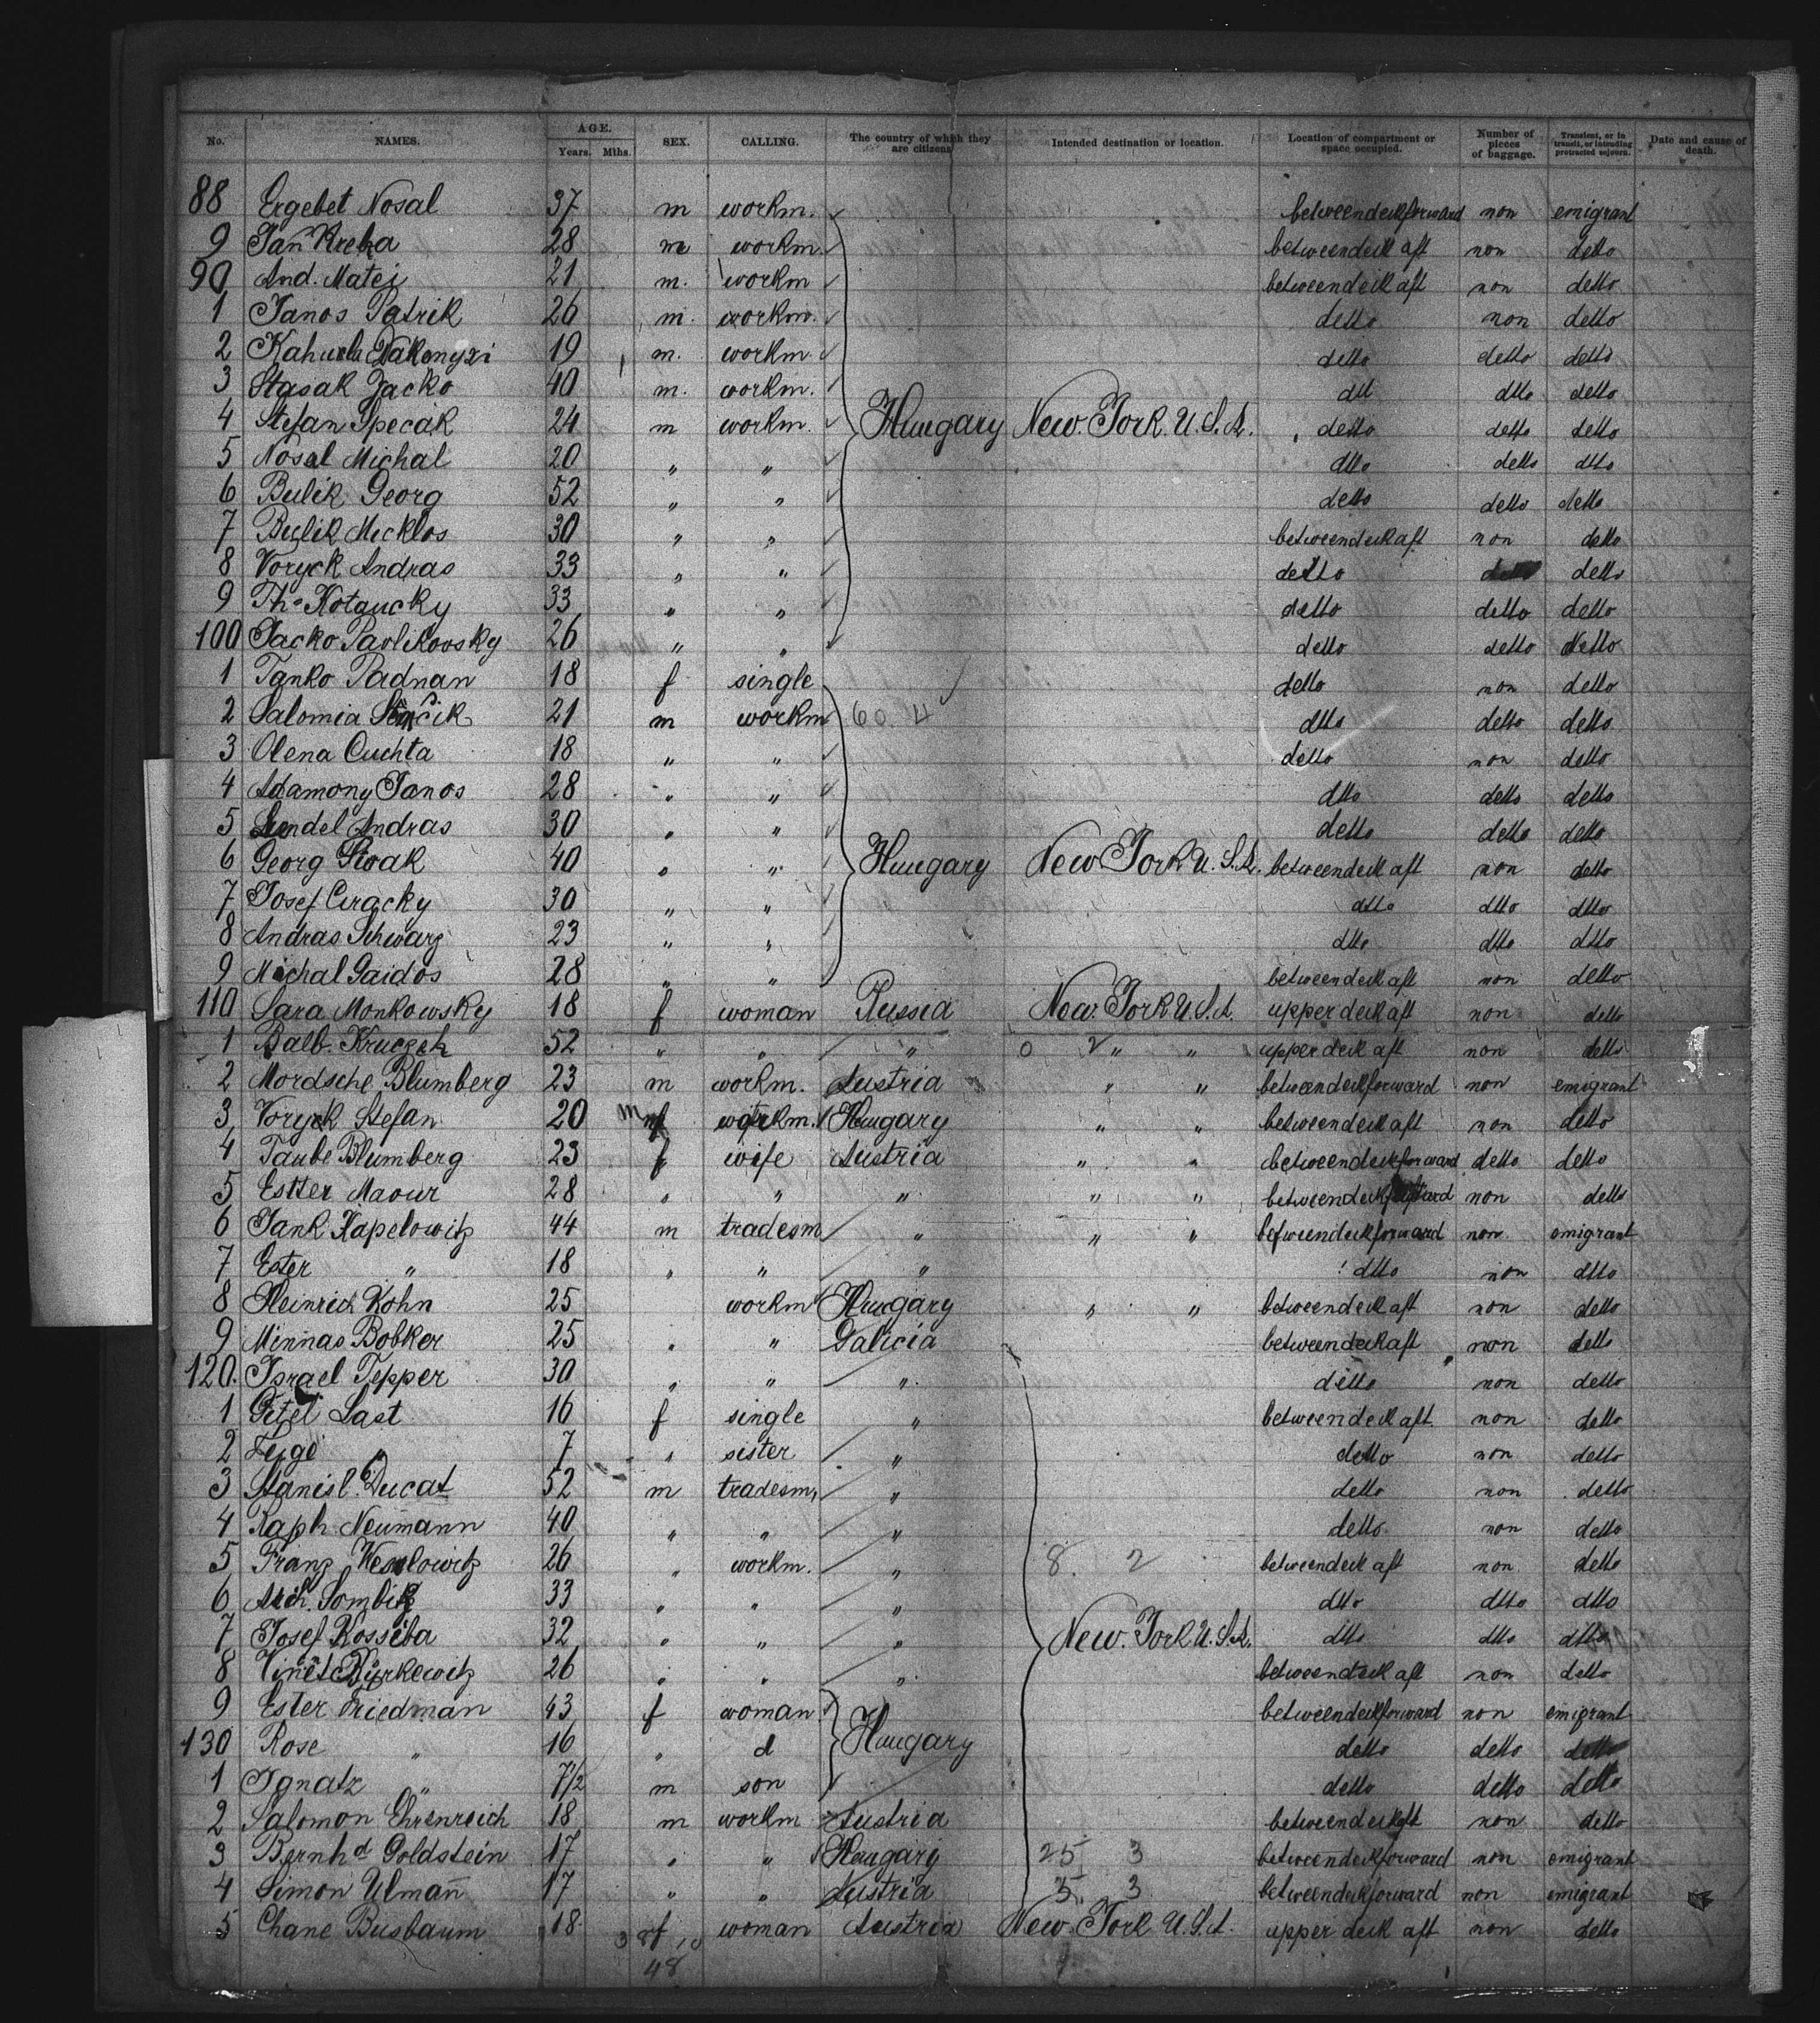 No. NAMES. AGE. Years. Mths. SEX. CALLING. The country of which they are citizens Intended destination or location. Location of compartment or space occupied. Number of pieces of baggage. Transient, or in transit, or intending protracted sojourn. Date and cause of death.
88 Ergebet Nosal 37 m workm. betweendeckforward non emigrant
9 Jan Kreha 28 m workm. betweendeck aft non detto
90 And. Matej 21 m. workm betweendeck aft non detto
1 Janos Patrik 26 m. workm. detto non detto
2 19 m. workm. detto detto detto
3 Stasak Jacko 40 m. workm. dtt dtto detto
4 Stefan Specak 24 m workm. Hungary New. York. U. S. A. detto detto detto
5 Nosal Michal 20 " " dtto detto dtto
6 Bulik Georg 52 " " detto detto detto
7 Bulik Mecklos 30 " " betweendeck aft non detto
8 Voryck Andras 33 " " detto detto
9 Th. Kotaucky 33 " " detto detto detto
100 Jacko Pavlikovsky 26 " " detto detto detto
1 Janko Padnan 18 f single detto non detto
2 Salomia 21 m workm 60. 4 dtto detto detto
3 Olena Cuchta 18 " " detto non detto
4 Adamony Janos 28 " " dtto detto detto
5 Lendel Andras 30 " " detto detto detto
6 Georg Siwak 40 " " Hungary New York U. S. A. betweendeck aft non detto
7 Josef Ciracky 30 " " dtto dtto dtto
8 Andras Schwarz 23 " " dtto dtto dtto
9 Michal Gaidos 28 " " betweendeck aft non detto
110 Sara Monkowsky 18 f woman Russia New. York U. S. A. upper deck aft non detto
1 Balb. Kruczek 52 " " " 0 2 " " upper deck aft non detto
2 Mordsche Blumberg 23 m workm. Austria " " betweendeckforward non emigrant
3 Voryck Stefan 20 m workm. Hungary " " betweendeck aft non detto
4 Taube Blumberg 23 f wife Austria " " betweendeckforward detto detto
5 Estter Maour 28 " " " " " betweendeck non detto
6 Jank Kapelowitz 44 m tradesm " " " betweendeckforward non emigrant
7 Ester " 18 " " " dtto non dtto
8 Heinrich Kohn 25 workm Hungary " " betweendeck aft non detto
9 Minnas Bobker 25 " " Galicia betweendeck aft non detto
120. Israel Tepper 30 " " " detto non detto
1 Gitel Last 16 f single " betweendeck aft. non detto
2 Feige " 7 " sister " detto non detto
3 Stanisl. Ducat 52 m tradesm, " detto non detto
4 Raph. Neumann 40 " " " detto non detto
5 Franz 26 " workm. " 8. 2 betweendeck aft non detto
6 33 " " " dtto dtto dtto
7 Josef Kosseba 32 " " " New. York U. S. A. dtto dtto dtto
8 26 " " " betweendeck aft non detto
9 Ester Friedman 43 f woman betweendeckforward non emigrant
130 Rose " 16 " d Hungary detto detto detto
1 Ignatz " 7½ m son detto detto detto
2 Salomon Ehrenreich 18 m workm Austria betweendeckaft non detto
3 Bernhd. Goldstein 17 " " Hungary 25 3 betweendeckforward non emigrant
4 Simon Ulmañ 17 " " Austria 5 3 betweendeckforward non emigrant
5 Chane Busbaum 18 f woman Austria New. York U. S. A. upper deck aft non detto
38 10
48